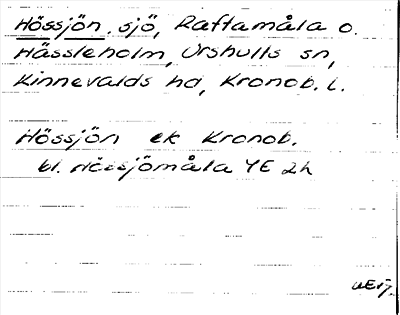 Hössjön, sjö, Raftamåla o.
Hässleholm, Urshults sn,
Kinnevalds hd, Kronob. l.
Hössjön ek Kronob.
bl. Hössjömåla YE 2h